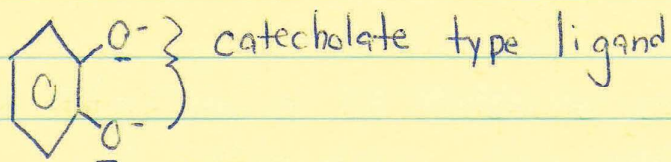 O- } catecholate type ligand
O-